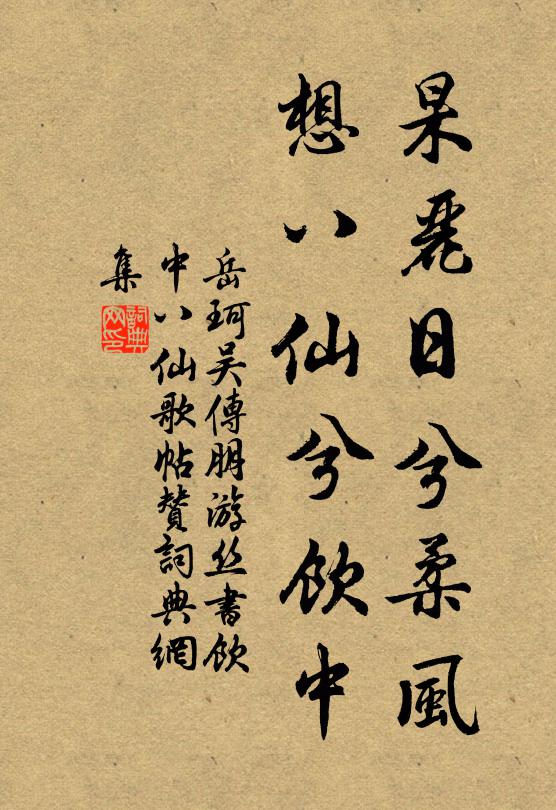 杲麗日兮柔風
想八仙兮飲中
岳珂吴傅朋游丝書飲
中八仙歌帖贊詞典網
集
詞典
网印